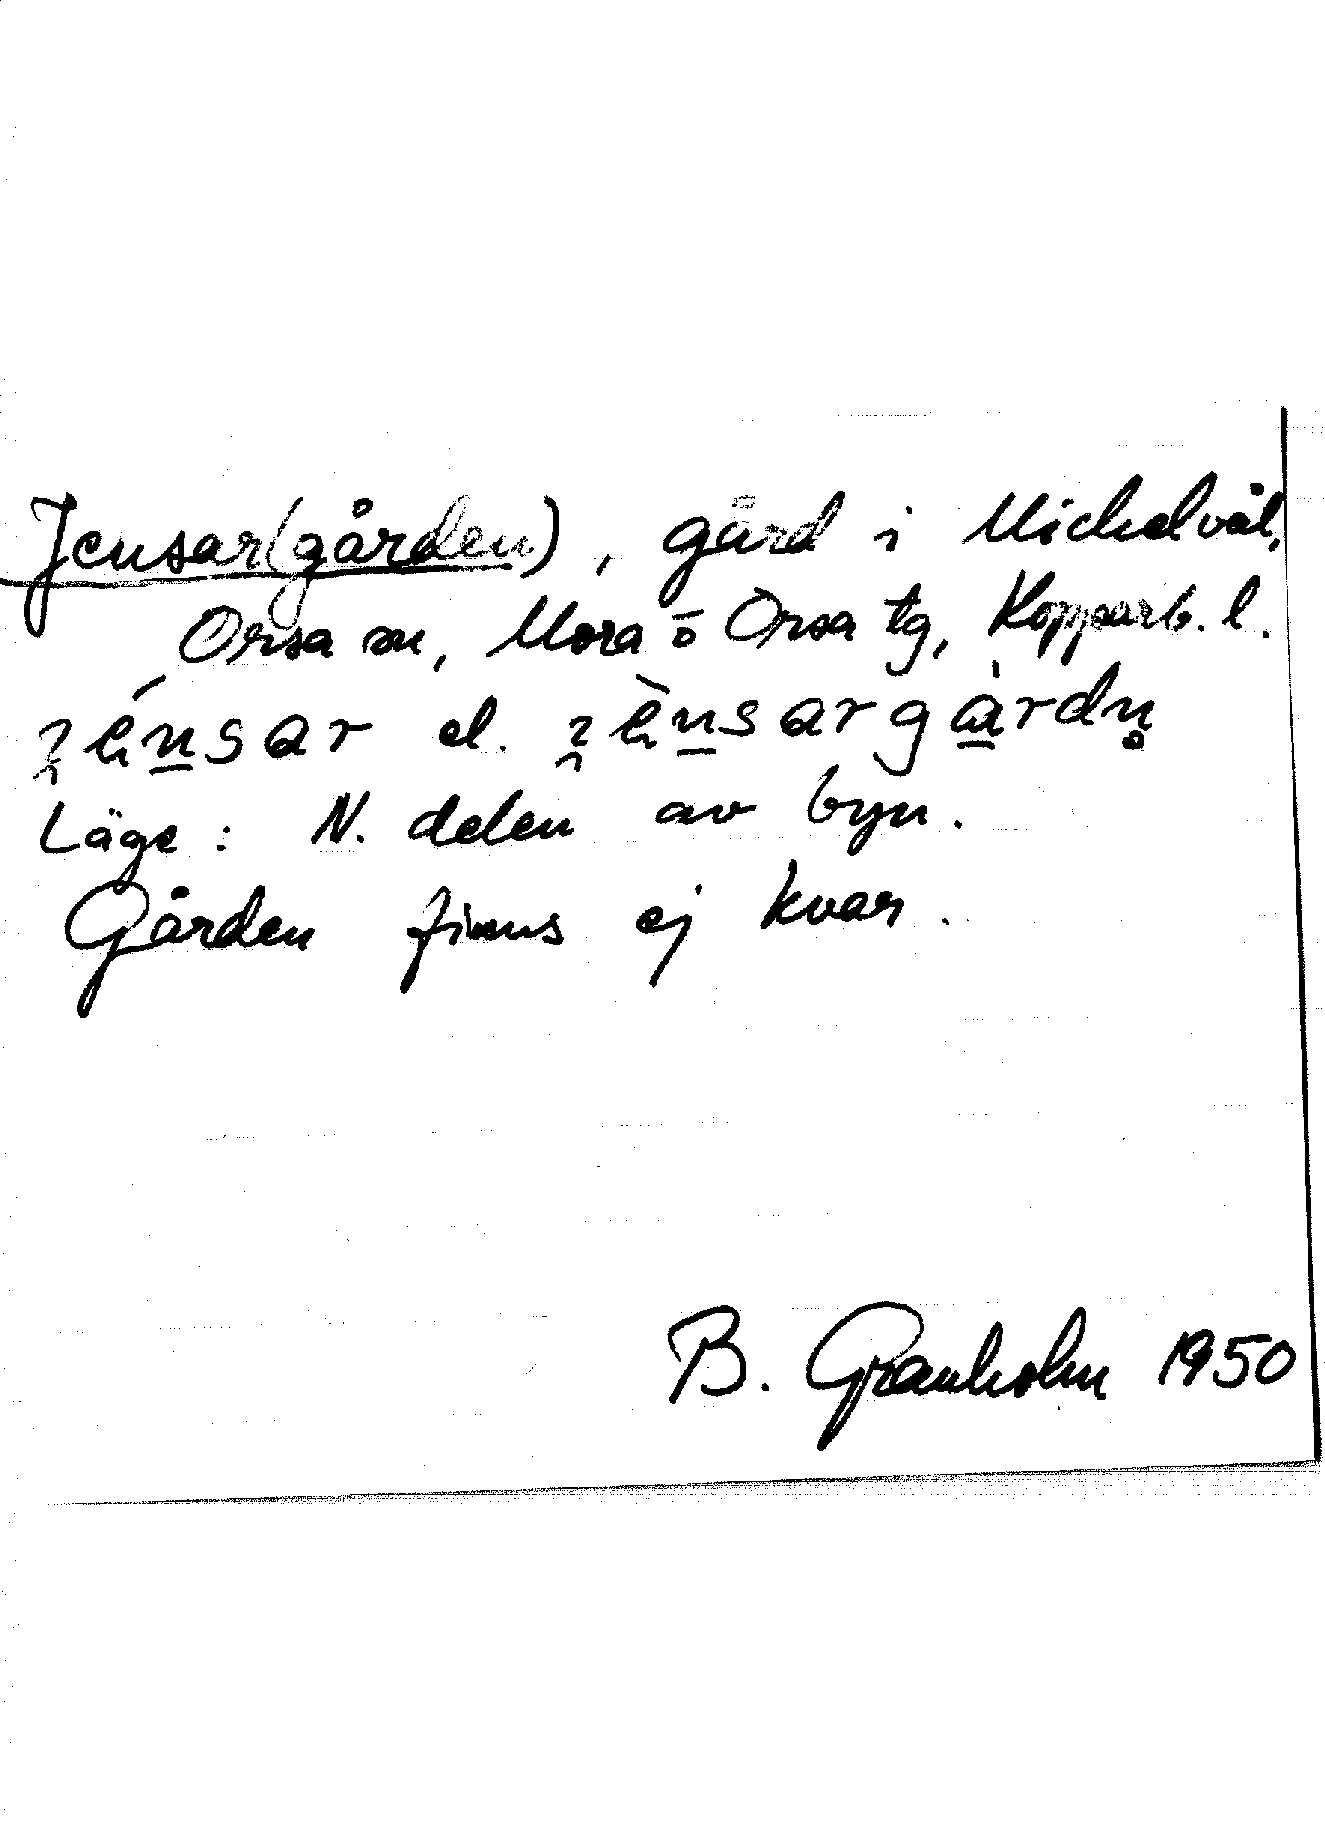 Jensar(gården), gård i Mickelvål,
Orsa sn, Mora o Orsa tg, Kopparb. l.
el.
Läge: N. delen av byn.
Gården finns ej kvar.
B. Granholm 1950